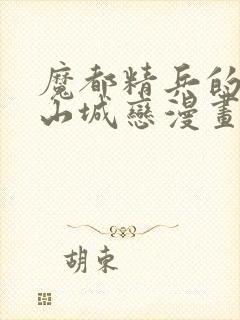 魔都精兵的
山城戀漫畫
胡束